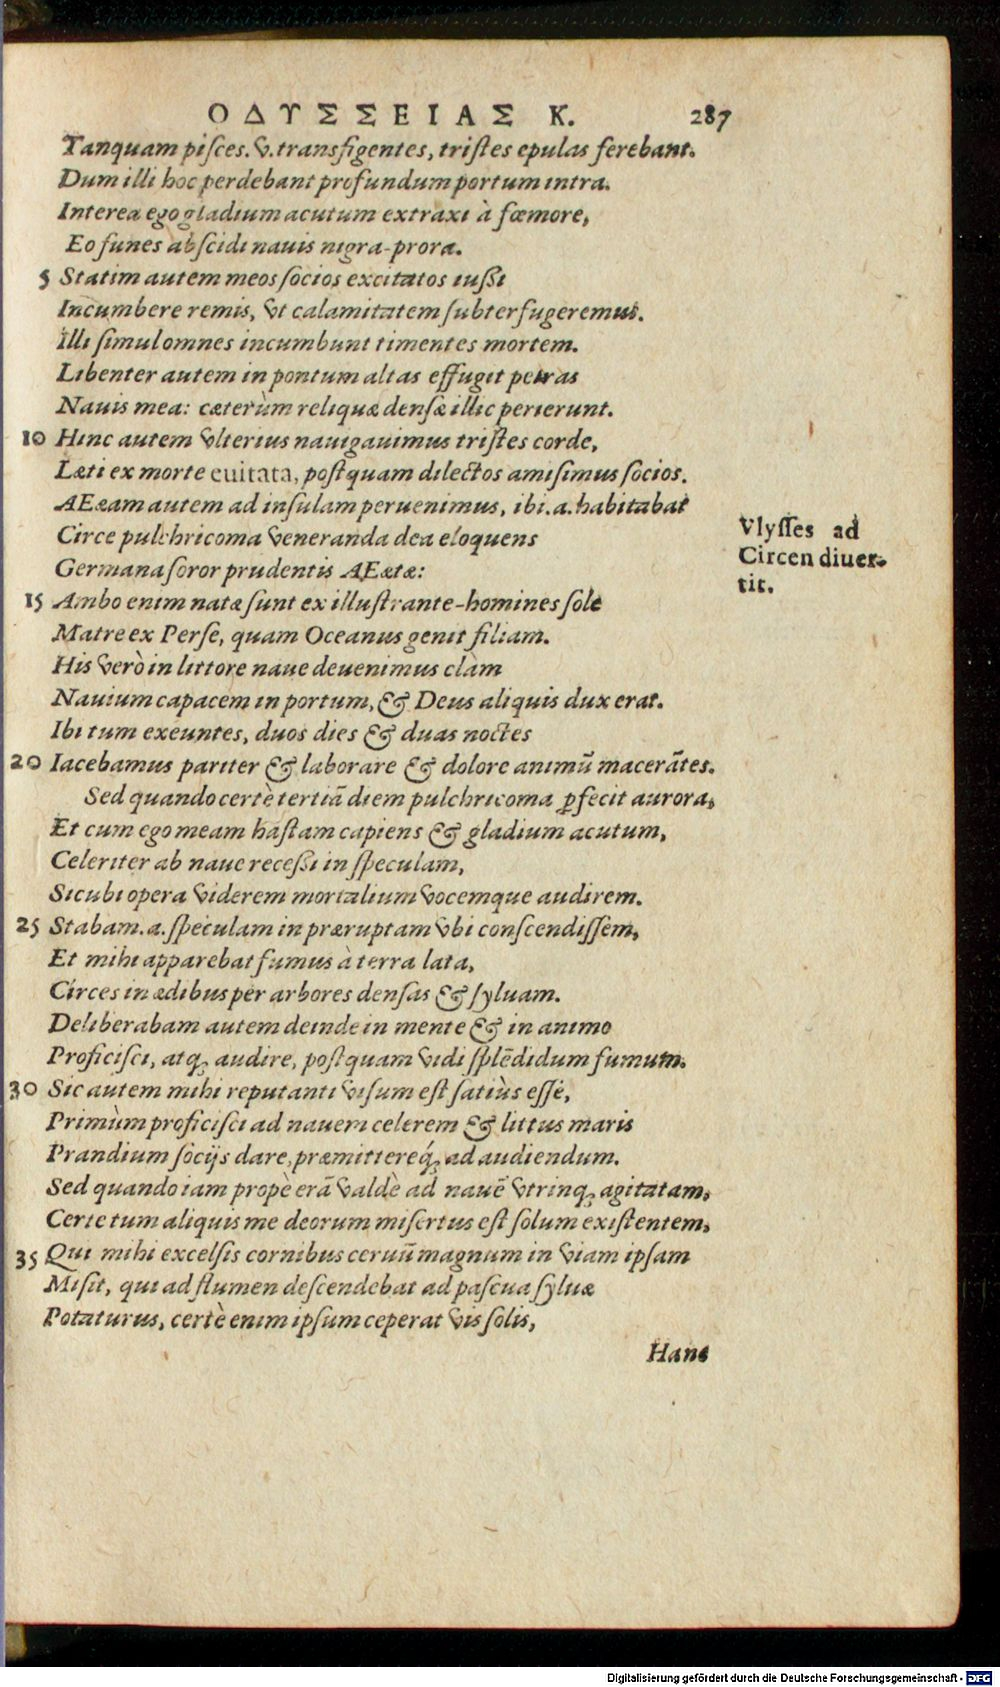 ΟΔΥΣΣΕΙΑΣ Κ. 287
Tanquam pisces. v. transfigentes, tristes epulas ferebant.
Dum illi hoc perdebant profundum portum intra.
Interea ego gladium acutum extraxi à fœmore,
Eo funes abscidi nauis nigra-prora.
5 Statim autem meos socios excitatos iussi
Incumbere remis, vt calamitatem subterfugeremus.
Illi simul omnes incumbunt timentes mortem.
Libenter autem in pontum altas effugit petras
Nauis mea: cæterùm reliquæ densæ illic perierunt.
10 Hinc autem vlterius nauigauimus tristes corde,
Læti ex morte euitata, postquam dilectos amisimus socios.
AEæam autem ad insulam peruenimus, ibi. a. habitabat
Circe pulchricoma veneranda dea eloquens
Germana soror prudentis AEætæ:
15 Ambo enim natæ sunt ex illustrante-homines sole
Matre ex Perse, quam Oceanus genit filiam.
His verò in littore naue deuenimus clàm
Nauium capacem in portum, & Deus aliquis dux erat.
Ibi tum exeuntes, duos dies & duas noctes
20 Iacebamus pariter & laborare & dolore animũ macerãtes.
Sed quando certè tertiã diem pulchricoma ꝑfecit aurora,
Et cum ego meam hastam capiens & gladium acutum,
Celeriter ab naue recessi in speculam,
Sicubi opera viderem mortalium vocemque audirem.
25 Stabam. a. speculam in præruptam vbi conscendissem,
Et mihi apparebat fumus à terra lata,
Circes in ædibus per arbores densas & syluam.
Deliberabam autem deinde in mente & in animo
Proficisci, atq; audire, postquam vidi splẽdidum fumum.
30 Sic autem mihi reputanti visum est satiùs esse,
Primùm proficisci ad nauem celerem & littus maris
Prandium socijs dare, præmittereq́; ad audiendum.
Sed quando iam propè erã valdè ad nauẽ vtrinq; agitatam,
Certe tum aliquis me deorum misertus est solum existentem,
35 Qui mihi excelsis cornibus ceruũ magnum in viam ipsam
Misit, qui ad flumen descendebat ad pascua syluæ
Potaturus, certè enim ipsum ceperat vis solis,
Hanc
Vlysses ad
Circen diuer-
tit.
Digitalisierung gefördert durch die Deutsche Forschungsgemeinschaft - DFG